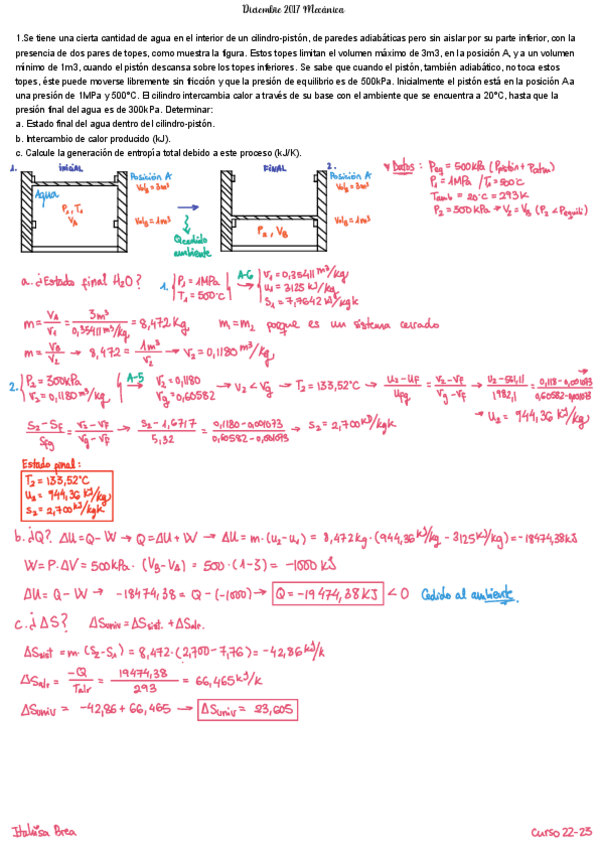 Diciembre 2017 Mecánica
1.Se tiene una cierta cantidad de agua en el interior de un cilindro-pistón, de paredes adiabáticas pero sin aislar por su parte inferior, con la
presencia de dos pares de topes, como muestra la figura. Estos topes limitan el volumen máximo de 3m3, en la posición A, y a un volumen
mínimo de 1m3, cuando el pistón descansa sobre los topes inferiores. Se sabe que cuando el pistón, también adiabático, no toca estos
topes, éste puede moverse libremente sin fricción y que la presión de equilibrio es de 500kPa. Inicialmente el pistón está en la posición A a
una presión de 1MPa y 500°C. El cilindro intercambia calor a través de su base con el ambiente que se encuentra a 20°C, hasta que la
presión final del agua es de 300kPa. Determinar:
a. Estado final del agua dentro del cilindro-pistón.
b. Intercambio de calor producido (kJ).
c. Calcule la generación de entropía total debido a este proceso (kJ/K).
1. INICIAL
Posición A
Vol = 3m³
Agua
P₁, T₁
V_A
Vol_B = 1m³
Q cedido
ambiente
FINAL 2.
Posición A
Vol = 3m³
P₂, V_B
Vol_B = 1m³
Datos: Peq = 500kPa (Ppistón + Patm)
P₁ = 1MPa / T₁ = 500°C
Tamb = 20°C = 293K
P₂ = 300kPa → V₂ = V_B (P₂ < Pequili)
a. ¿Estado final H₂O? 1. { P₁ = 1MPa T₁ = 500°C } A-6 → { v₁ = 0,35411 m³/kg
u₁ = 3125 kJ/kg
s₁ = 7,7642 kJ/kgK
m = V_A/v₁ = 3m³/0,35411 m³/kg = 8,472 kg m₁ = m₂ porque es un sistema cerrado
m = V_B/v₂ → 8,472 = 1m³/v₂ → v₂ = 0,1180 m³/kg
2. { P₂ = 300kPa v₂ = 0,1180 m³/kg } A-5 → v₂ = 0,1180 vg = 0,60582 → v₂ < vg → T₂ = 133,52°C → (u₂ - uf)/ufg = (v₂ - vf)/(vg - vf) → (u₂ - 561,11)/1982,1 = (0,118 - 0,001073)/(0,60582 - 0,001073)
→ u₂ = 944,36 kJ/kg
(s₂ - sf)/sfg = (v₂ - vf)/(vg - vf) → (s₂ - 1,6717)/5,32 = (0,1180 - 0,001073)/(0,60582 - 0,001073) → s₂ = 2,700 kJ/kgK
Estado final:
T₂ = 133,52°C
u₂ = 944,36 kJ/kg
s₂ = 2,700 kJ/kgK
b. ¿Q? ΔU = Q - W → Q = ΔU + W → ΔU = m · (u₂ - u₁) = 8,472 kg · (944,36 kJ/kg - 3125 kJ/kg) = -18474,38 kJ
W = P · ΔV = 500kPa · (V_B - V_A) = 500 · (1 - 3) = -1000 kJ
ΔU = Q - W → -18474,38 = Q - (-1000) → Q = -19474,38 KJ < 0 Cedido al ambiente.
c. ¿ΔS? ΔSuniv = ΔSsist. + ΔSalr.
ΔSsist = m · (s₂ - s₁) = 8,472 · (2,700 - 7,76) = -42,86 kJ/k
ΔSalr = -Q/Talr = 19474,38/293 = 66,465 kJ/k
ΔSuniv = -42,86 + 66,465 → ΔSuniv = 23,605
Brea
Curso 22-23